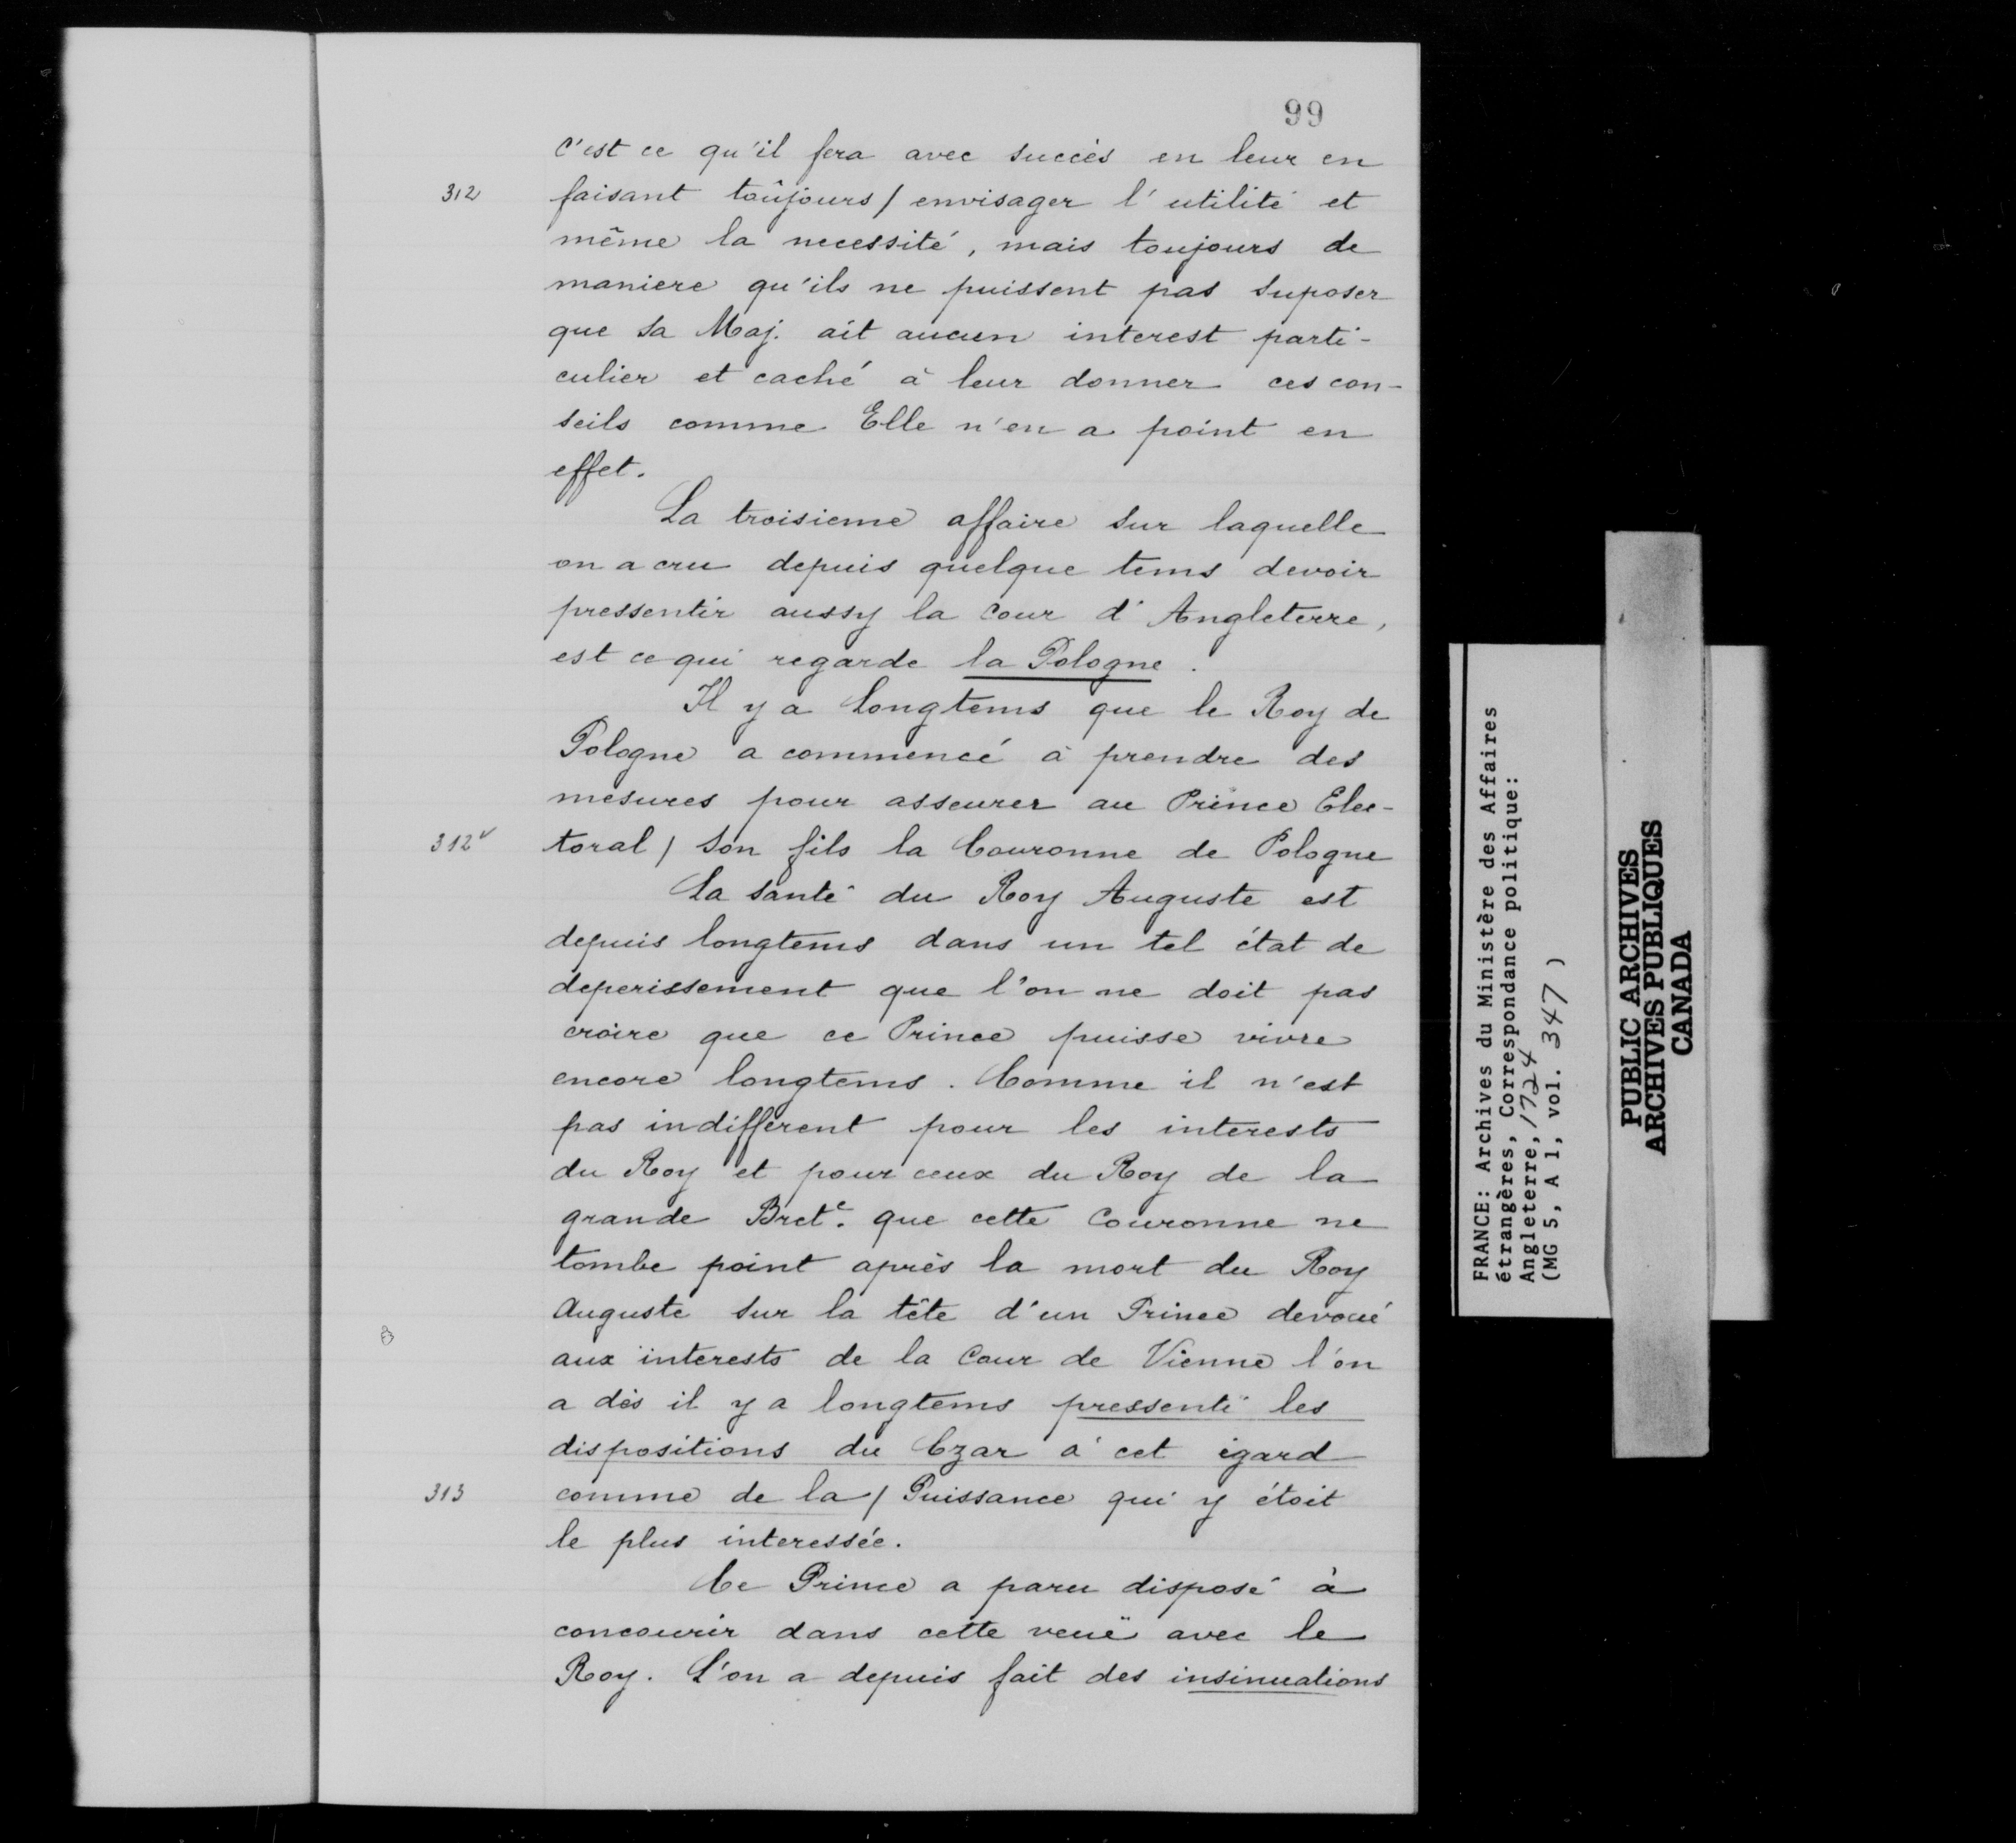 99
c'est ce qu'il fera avec succès en leur en
312 faisant toûjours / envisager l'utilité et
même la necessité, mais toujours de
maniere qu'ils ne puissent pas suposer
que Sa Maj. ait aucun interest parti-
culier et caché à leur donner ces con-
seils comme Elle n'en a point en
effet.
La troisieme affaire sur laquelle
on a cru depuis quelque tems devoir
pressentir aussy la Cour d'Angleterre,
est ce qui regarde la Pologne.
Il y a longtems que le Roy de
Pologne a commencé à prendre des
mesures pour asseurer au Prince Elec-
312v toral / son fils la Couronne de Pologne
La santé du Roy Auguste est
depuis longtems dans un tel état de
deperissement que l'on ne doit pas
croire que ce Prince puisse vivre
encore longtems. Comme il n'est
pas indifferent pour les interests
du Roy et pour ceux du Roy de la
grande Bret.e que cette Couronne ne
tombe point après la mort du Roy
Auguste sur la tête d'un Prince devoué
aux interests de la Cour de Vienne l'on
a dès il y a longtems pressenti les
dispositions du Czar à cet égard
313 comme de la / Puissance qui y étoit
le plus interessée.
Ce Prince a paru disposé à
concourir dans cette veuë avec le
Roy. L'on a depuis fait des insinuations
FRANCE: Archives du Ministère des Affaires
étrangères, Correspondance politique:
Angleterre, 1724
(MG 5, A 1, vol. 347 )
PUBLIC ARCHIVES
ARCHIVES PUBLIQUES
CANADA